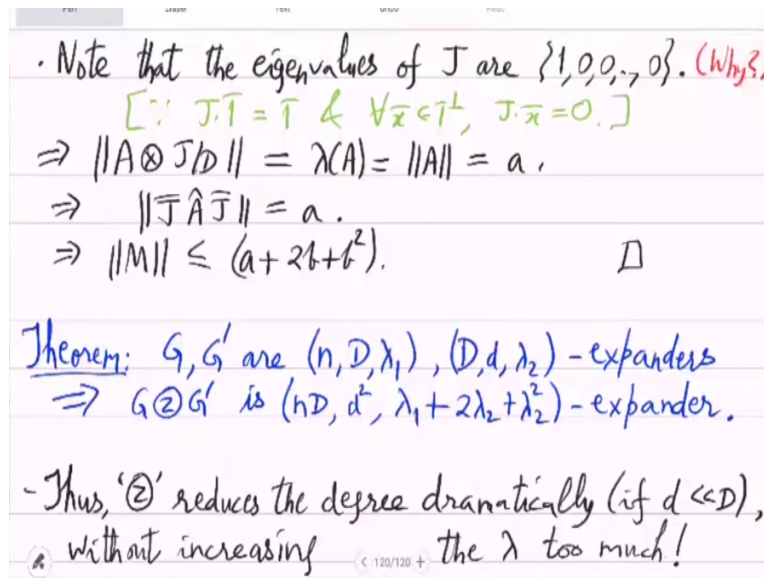 · Note that the eigenvalues of J are {1,0,0,..,0}. (Why?
[∵ J·1̄ = 1̄ & ∀x̄ ∈ 1̄^⊥, J·x̄ = 0.]
⇒ ||A⊗J/D|| = λ(A) = ||A|| = a.
⇒ ||J̄ Â J̄|| = a.
⇒ ||M|| ≤ (a+2b+b²). □
Theorem: G, G' are (n,D,λ₁), (D,d,λ₂) - expanders
⇒ GⓩG' is (nD, d², λ₁+2λ₂+λ₂²) - expander.
- Thus, 'ⓩ' reduces the degree dramatically (if d<<D),
without increasing the λ too much!
< 120/120 +